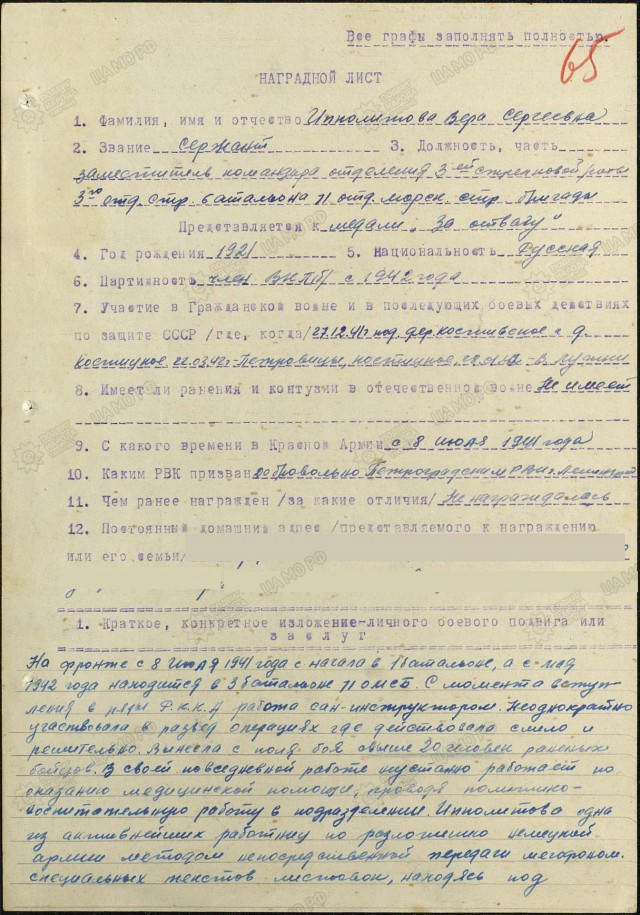 Все графы заполнять полностью.
65
НАГРАДНОЙ ЛИСТ
1. Фамилия, имя и отчество Ипполитова Вера Сергеевна
2. Звание Сержант 3. Должность, часть
заместитель командира отделения 3-ей стрелковой роты
3го отд. стр. батальона 71 отд. морск. стр. бригады
Представляется к медали "За отвагу"
4. Год рождения 1921 5. Национальность Русская
6. Партийность член ВКПб с 1942 года
7. Участие в Гражданской войне и в последующих боевых действиях
по защите СССР /где, когда/ 27.12.41г под дер.
22.03.42г
8. Имеет ли ранения и контузии в отечественной войне Не имеет
9. С какого времени в Красной Армии с 8 июля 1941 года
10. Каким РВК призван добровольно Петроградским РВК г. Ленинград
11. Чем ранее награжден /за какие отличия/ Не награждалась
12. Постоянный домашний адрес /представляемого к награждению
или его семьи/
1. Краткое, конкретное изложение-личного боевого подвига или
заслуг
На фронте с 8 июля 1941 года с начала в 1 батальоне, а с мая
1942 года находится в 3 батальоне 71 омсб. С момента вступ-
ления в ряды Р.К.К.А работа сан-инструктором. Неоднократно
участвовала в развед операциях где действовала смело и
решительно. Вынесла с поля боя свыше 20 человек раненых
бойцов. В своей повседневной работе неустанно работает по
оказанию медицинской помощи, проводя политико-
воспитательную работу в подразделении. Ипполитова одна
из активнейших работниц по разложению немецкой
армии методом непосредственной передачи мегафоном.
специальных текстов листовок, находясь под